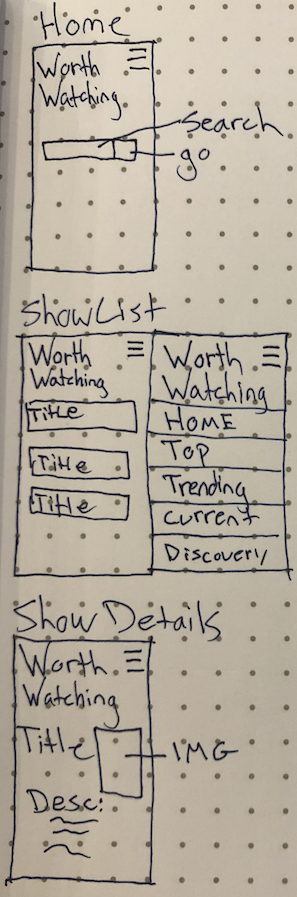 Home
Worth
Watching
Search
go
Show List
Worth
Watching
Title
Title
Title
Worth
Watching
HOME
Top
Trending
Current
Discovery
Show Details
Worth
Watching
Title
IMG
Desc: